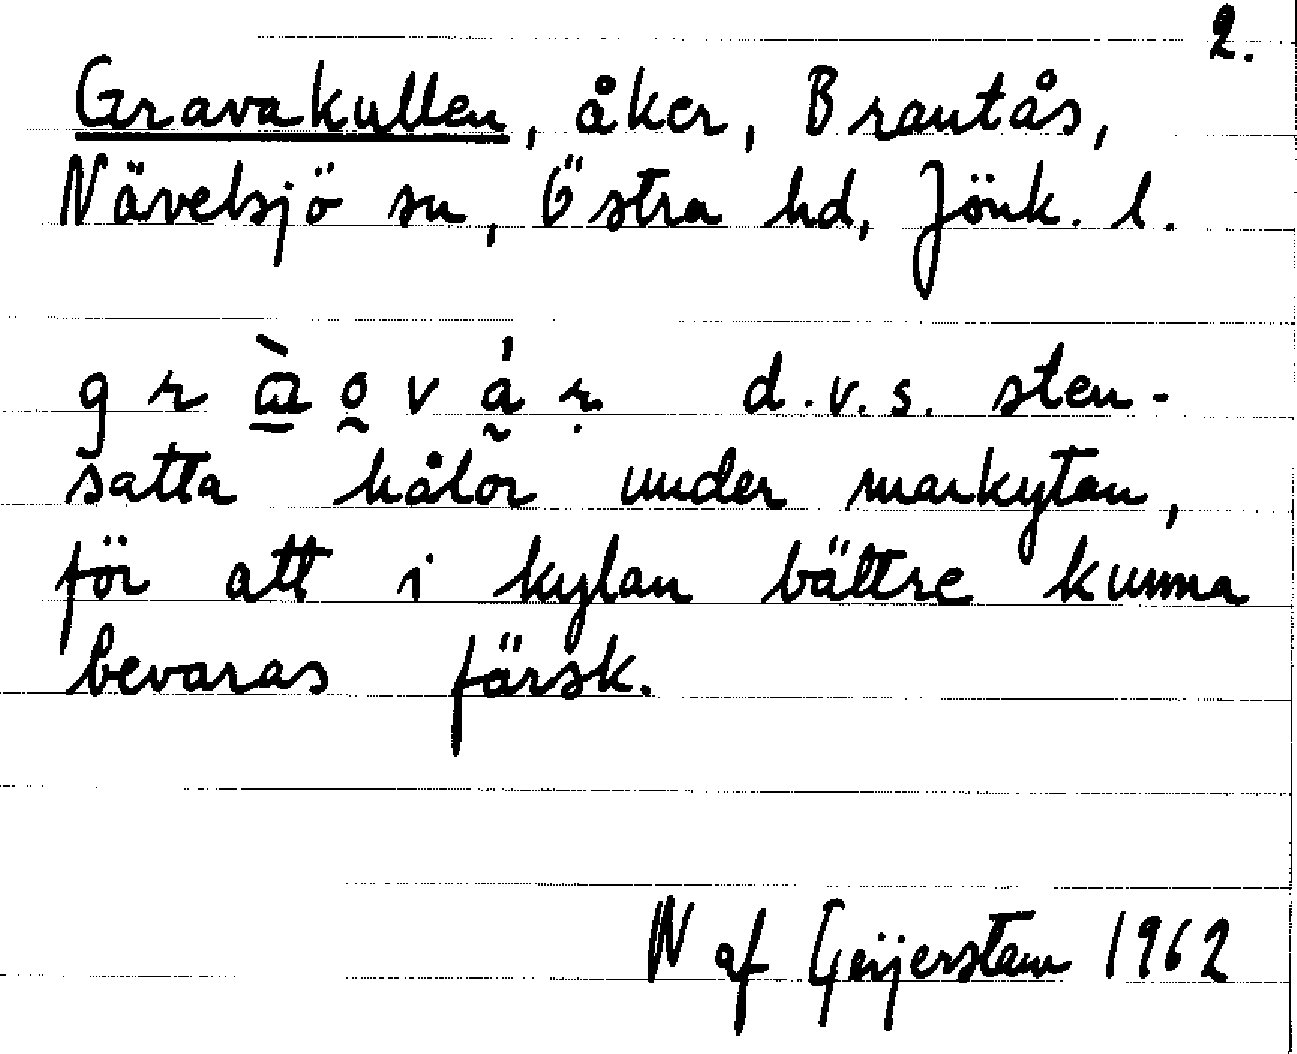 2.
Gravakullen, åker, Brantås,
Nävelsjö sn, Östra hd, Jönk. l.
d.v.s. sten-
satta hålor under markytan,
för att i kylan bättre kunna
bevaras färsk.
N af Geijerstam 1962